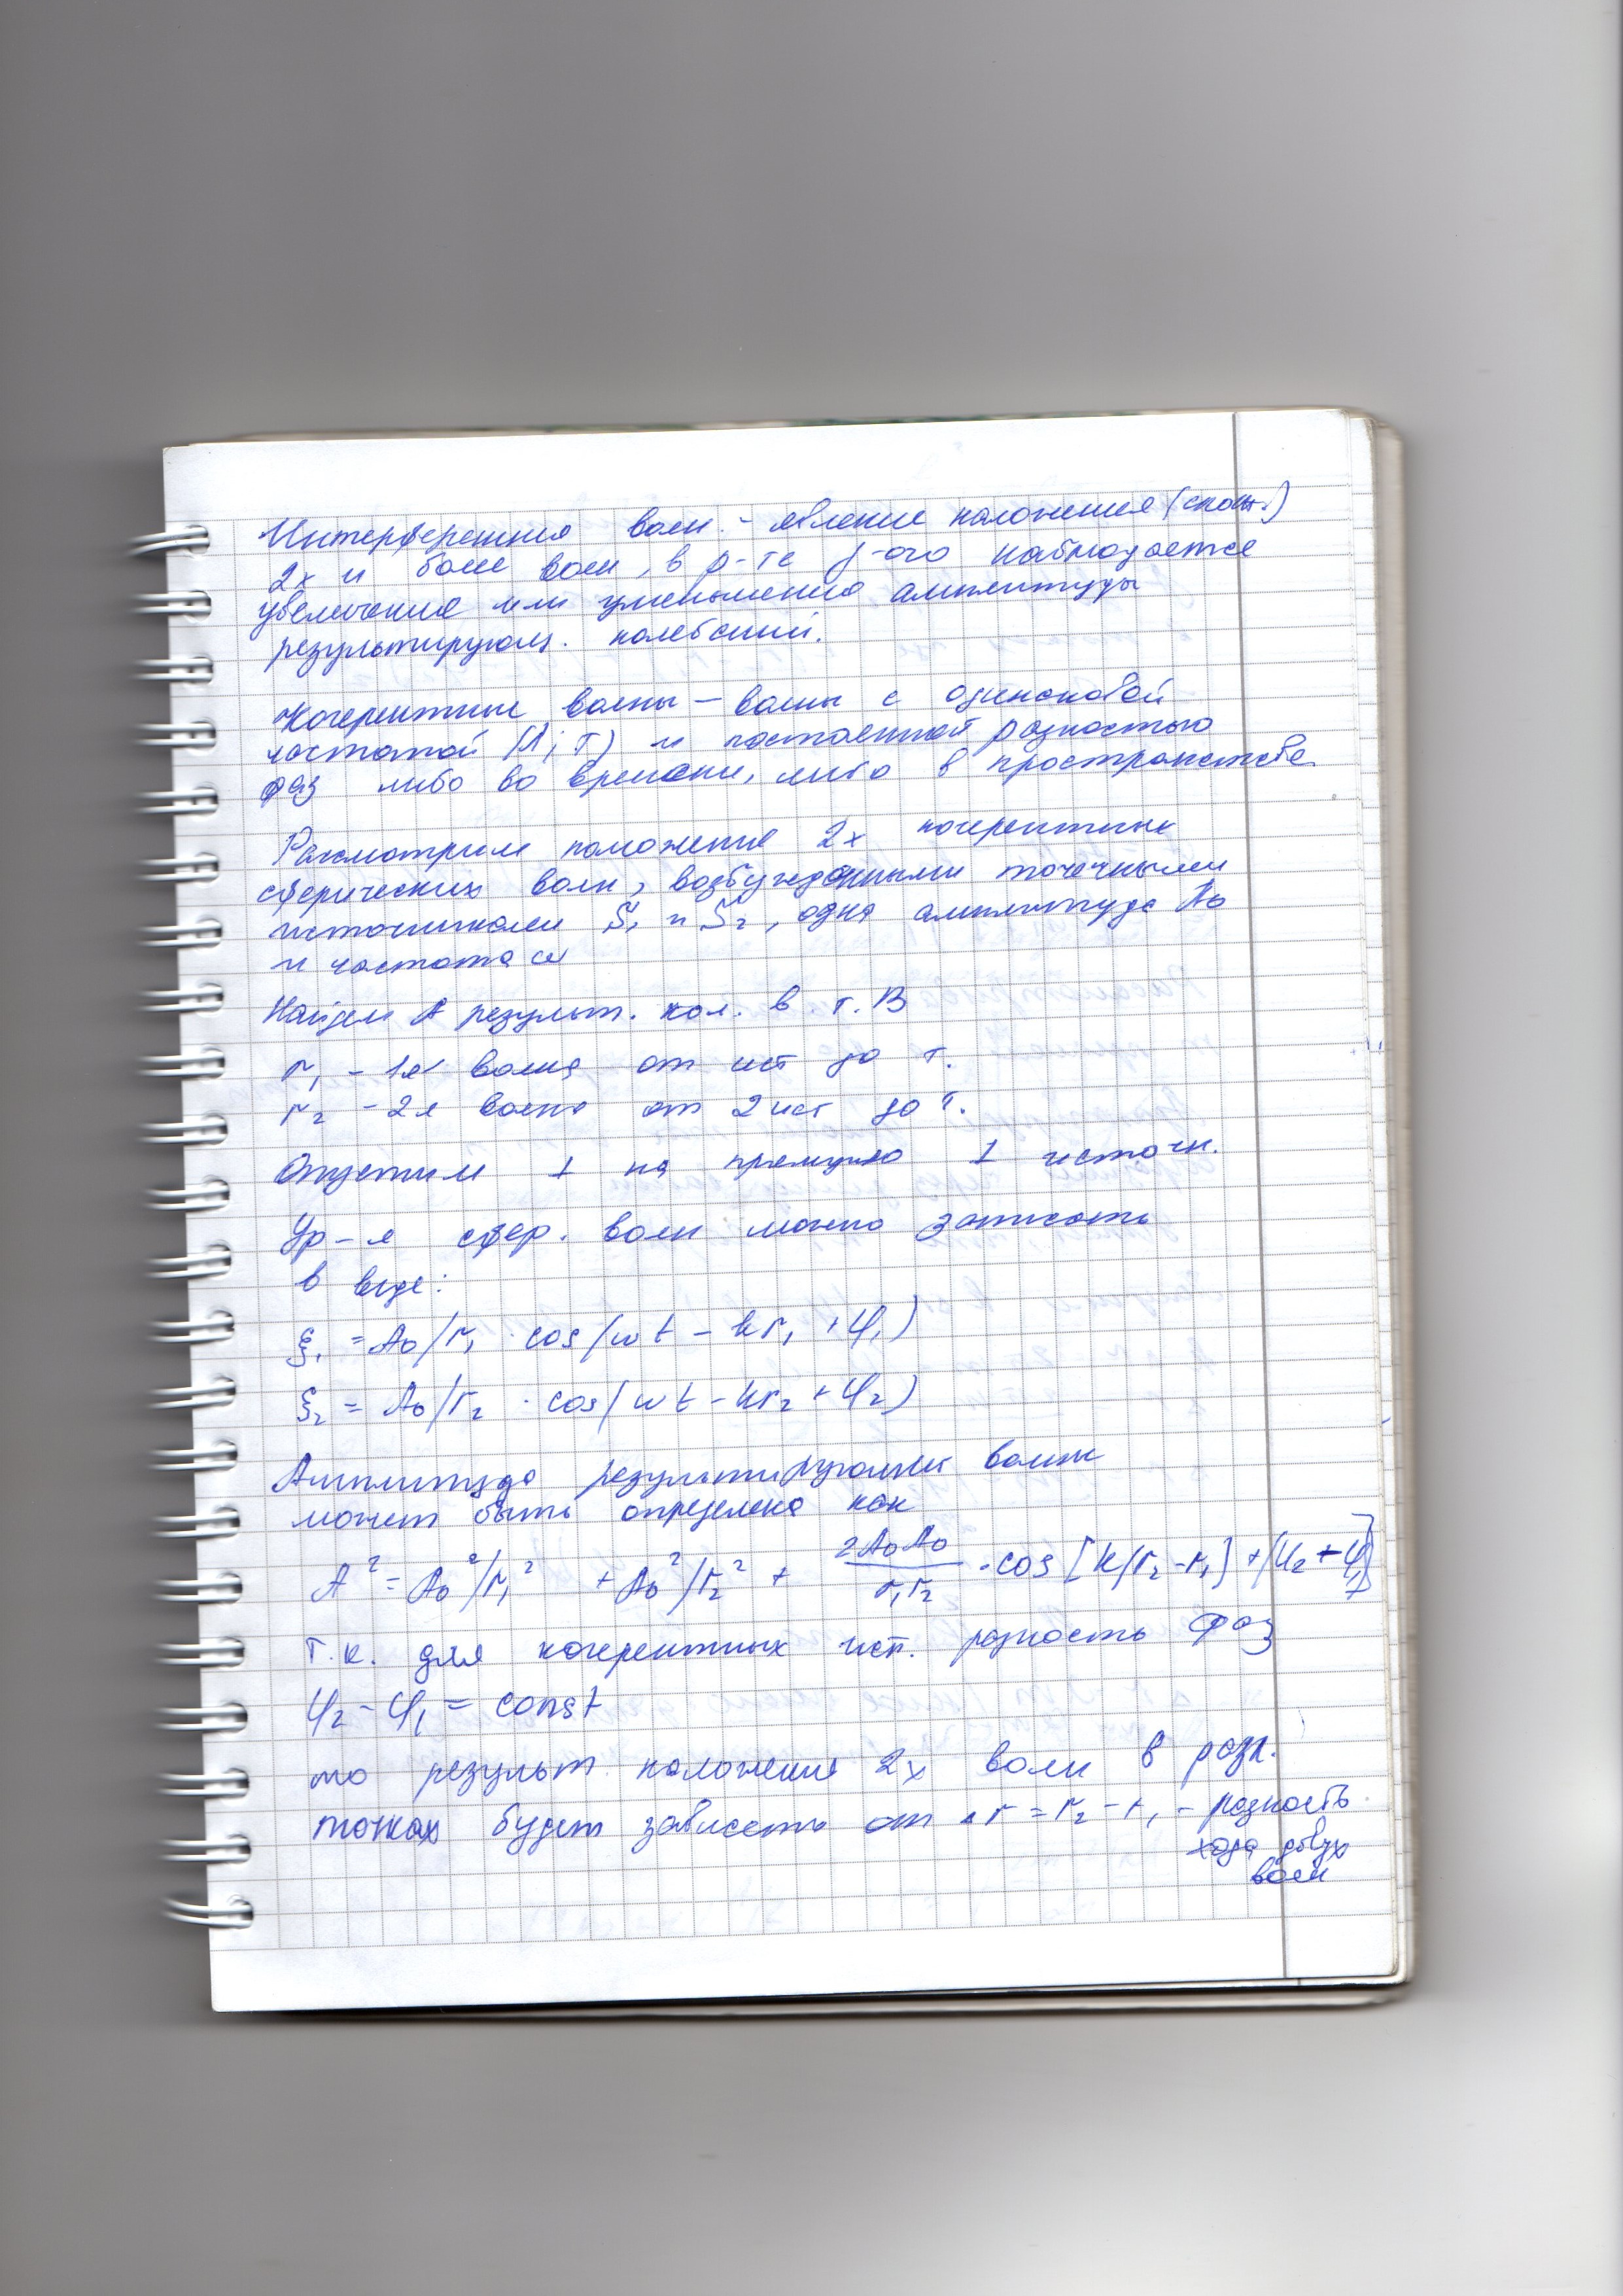 Интерференция волн - явление наложения (слож.)
2х и боле волн, в р-те γ-ого наблюдается
увеличение или уменьшение амплитуды
результирующ. колебаний.
Когерентные волны – волны с одинаковой
частотой (λ; T) и постоянной разностью
фаз либо во времени, либо в пространстве.
Рассмотрим наложение 2х когерентных
сферических волн, возбужденными точечными
источниками S₁ и S₂, одна амплитуда A₀
и частота ω
Найдем A результ. кол. в т. B
r₁ - 1я волна от ист до т.
r₂ - 2я волна от 2 ист до т.
Опустим ⊥ на прямую 1 источн.
Ур-я сфер. волн можно записать
в виде:
ξ₁ = A₀/r₁ · cos(ωt - kr₁ + φ₁)
ξ₂ = A₀/r₂ · cos(ωt - kr₂ + φ₂)
Амплитуда результирующей волны
может быть определена как
A² = A₀²/r₁² + A₀²/r₂² + 2A₀A₀/r₁r₂ · cos[k(r₂-r₁] + (φ₂ + φ₁)]
т.к. для когерентных ист. разность фаз
φ₂ - φ₁ = const
то результ. наложения 2х волн в разл.
точках будет зависеть от Δr = r₂ - r₁ - разность
хода двух
волн